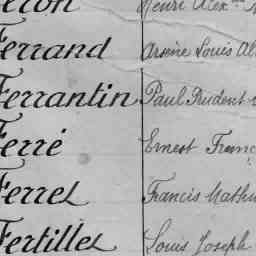 Ferrand Arsène Louis Al
Ferrantin Paul Prudent
Ferré Ernest Franç
Ferret Francis Mathu
Fertillet Louis Joseph